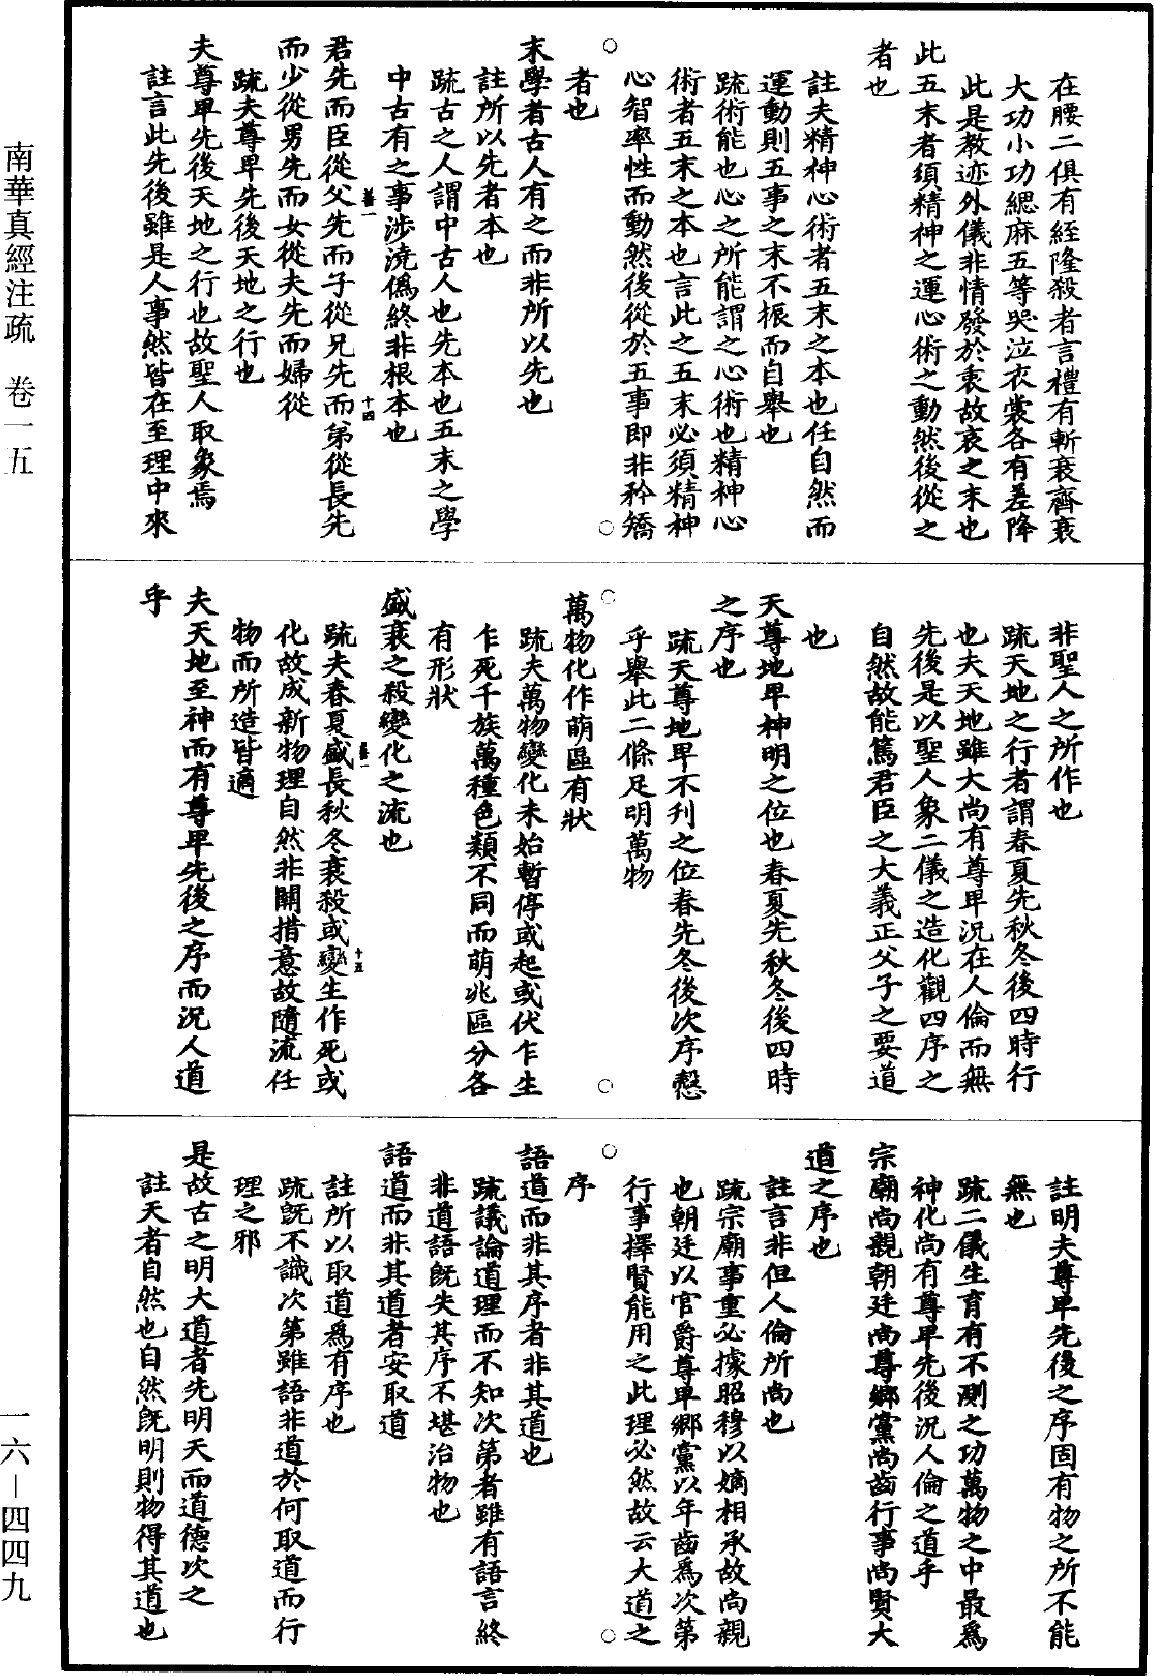 在腰二俱有絰隆殺者言禮有斬衰齊衰
大功小功緦麻五等哭泣衣裳各有差降
此是教迹外儀非情發於衷故哀之末也
此五末者須精神之運心術之動然後從之
者也
註夫精神心術者五末之本也任自然而
運動則五事之末不振而自舉也
疏術能也心之所能謂之心術也精神心
術者五末之本也言此之五末必須精神
心智率性而動然後從於五事即非矜矯
者也
末學者古人有之而非所以先也
註所以先者本也
疏古之人謂中古人也先本也五末之學
中古有之事涉澆偽終非根本也
君先而臣從父先而子從兄先而弟從長先
而少從男先而女從夫先而婦從
疏夫尊卑先後天地之行也
夫尊卑先後天地之行也故聖人取象焉
註言此先後雖是人事然皆在至理中來
非聖人之所作也
疏天地之行者謂春夏先秋冬後四時行
也夫天地雖大尚有尊卑況在人倫而無
先後是以聖人象二儀之造化觀四序之
自然故能篤君臣之大義正父子之要道
也
天尊地卑神明之位也春夏先秋冬後四時
之序也
疏天尊地卑不刊之位春先冬後次序慤
乎舉此二條足明萬物
萬物化作萌區有狀
疏夫萬物變化未始暫停或起或伏乍生
乍死千族萬種色類不同而萌兆區分各
有形狀
盛衰之殺變化之流也
疏夫春夏盛長秋冬衰殺或變生作死或
化故成新物理自然非關措意故隨流任
物而所造皆適
夫天地至神而有尊卑先後之序而況人道
乎
註明夫尊卑先後之序固有物之所不能
無也
疏二儀生育有不測之功萬物之中最為
神化尚有尊卑先後況人倫之道乎
宗廟尚親朝廷尚尊鄉黨尚齒行事尚賢大
道之序也
註言非但人倫所尚也
疏宗廟事重必據昭穆以嫡相承故尚親
也朝廷以官爵尊卑鄉黨以年齒為次第
行事擇賢能用之此理必然故云大道之
序
語道而非其序者非其道也
疏議論道理而不知次第者雖有語言終
非道語既失其序不堪治物也
語道而非其道者安取道
註所以取道為有序也
疏既不識次第雖語非道於何取道而行
理之邪
是故古之明大道者先明天而道德次之
註天者自然也自然既明則物得其道也
南華真經注疏 卷一五
一六－四四九